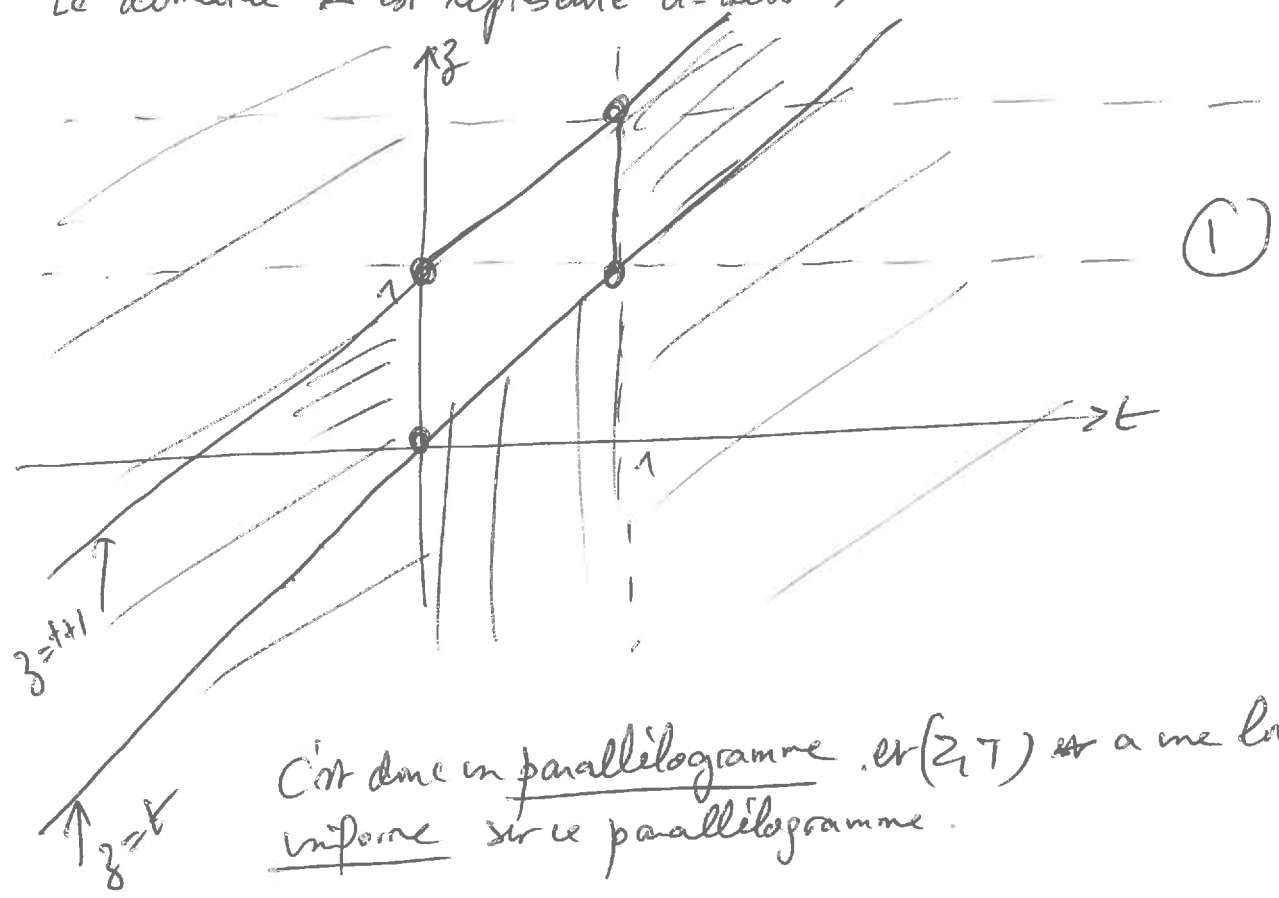 Le domaine est représenté ci-dessous
z
1
1
t
1
z=t+1
z=t
C'est donc un parallélogramme et (Z,T) a une loi
uniforme sur ce parallélogramme.